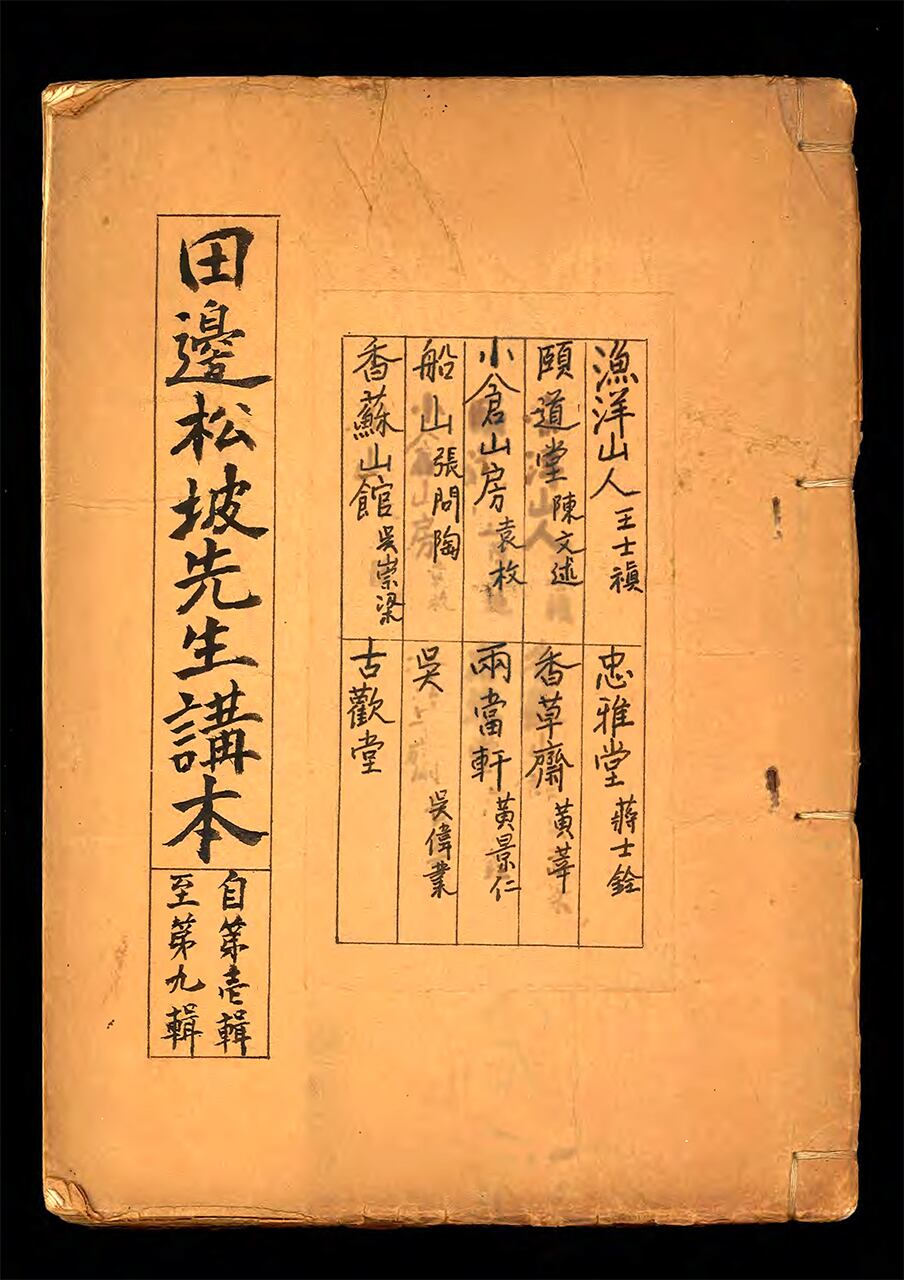 漁洋山人 王士禛
頤道堂 陳文述
小倉山房 袁枚
船山 張問陶
香蘇山館 吳崇梁
忠雅堂 蔣士銓
香草齋 黃莘
兩當軒 黃景仁
吳 吳偉業
古歡堂
田邊松坡先生講本
自第壱輯
至第九輯